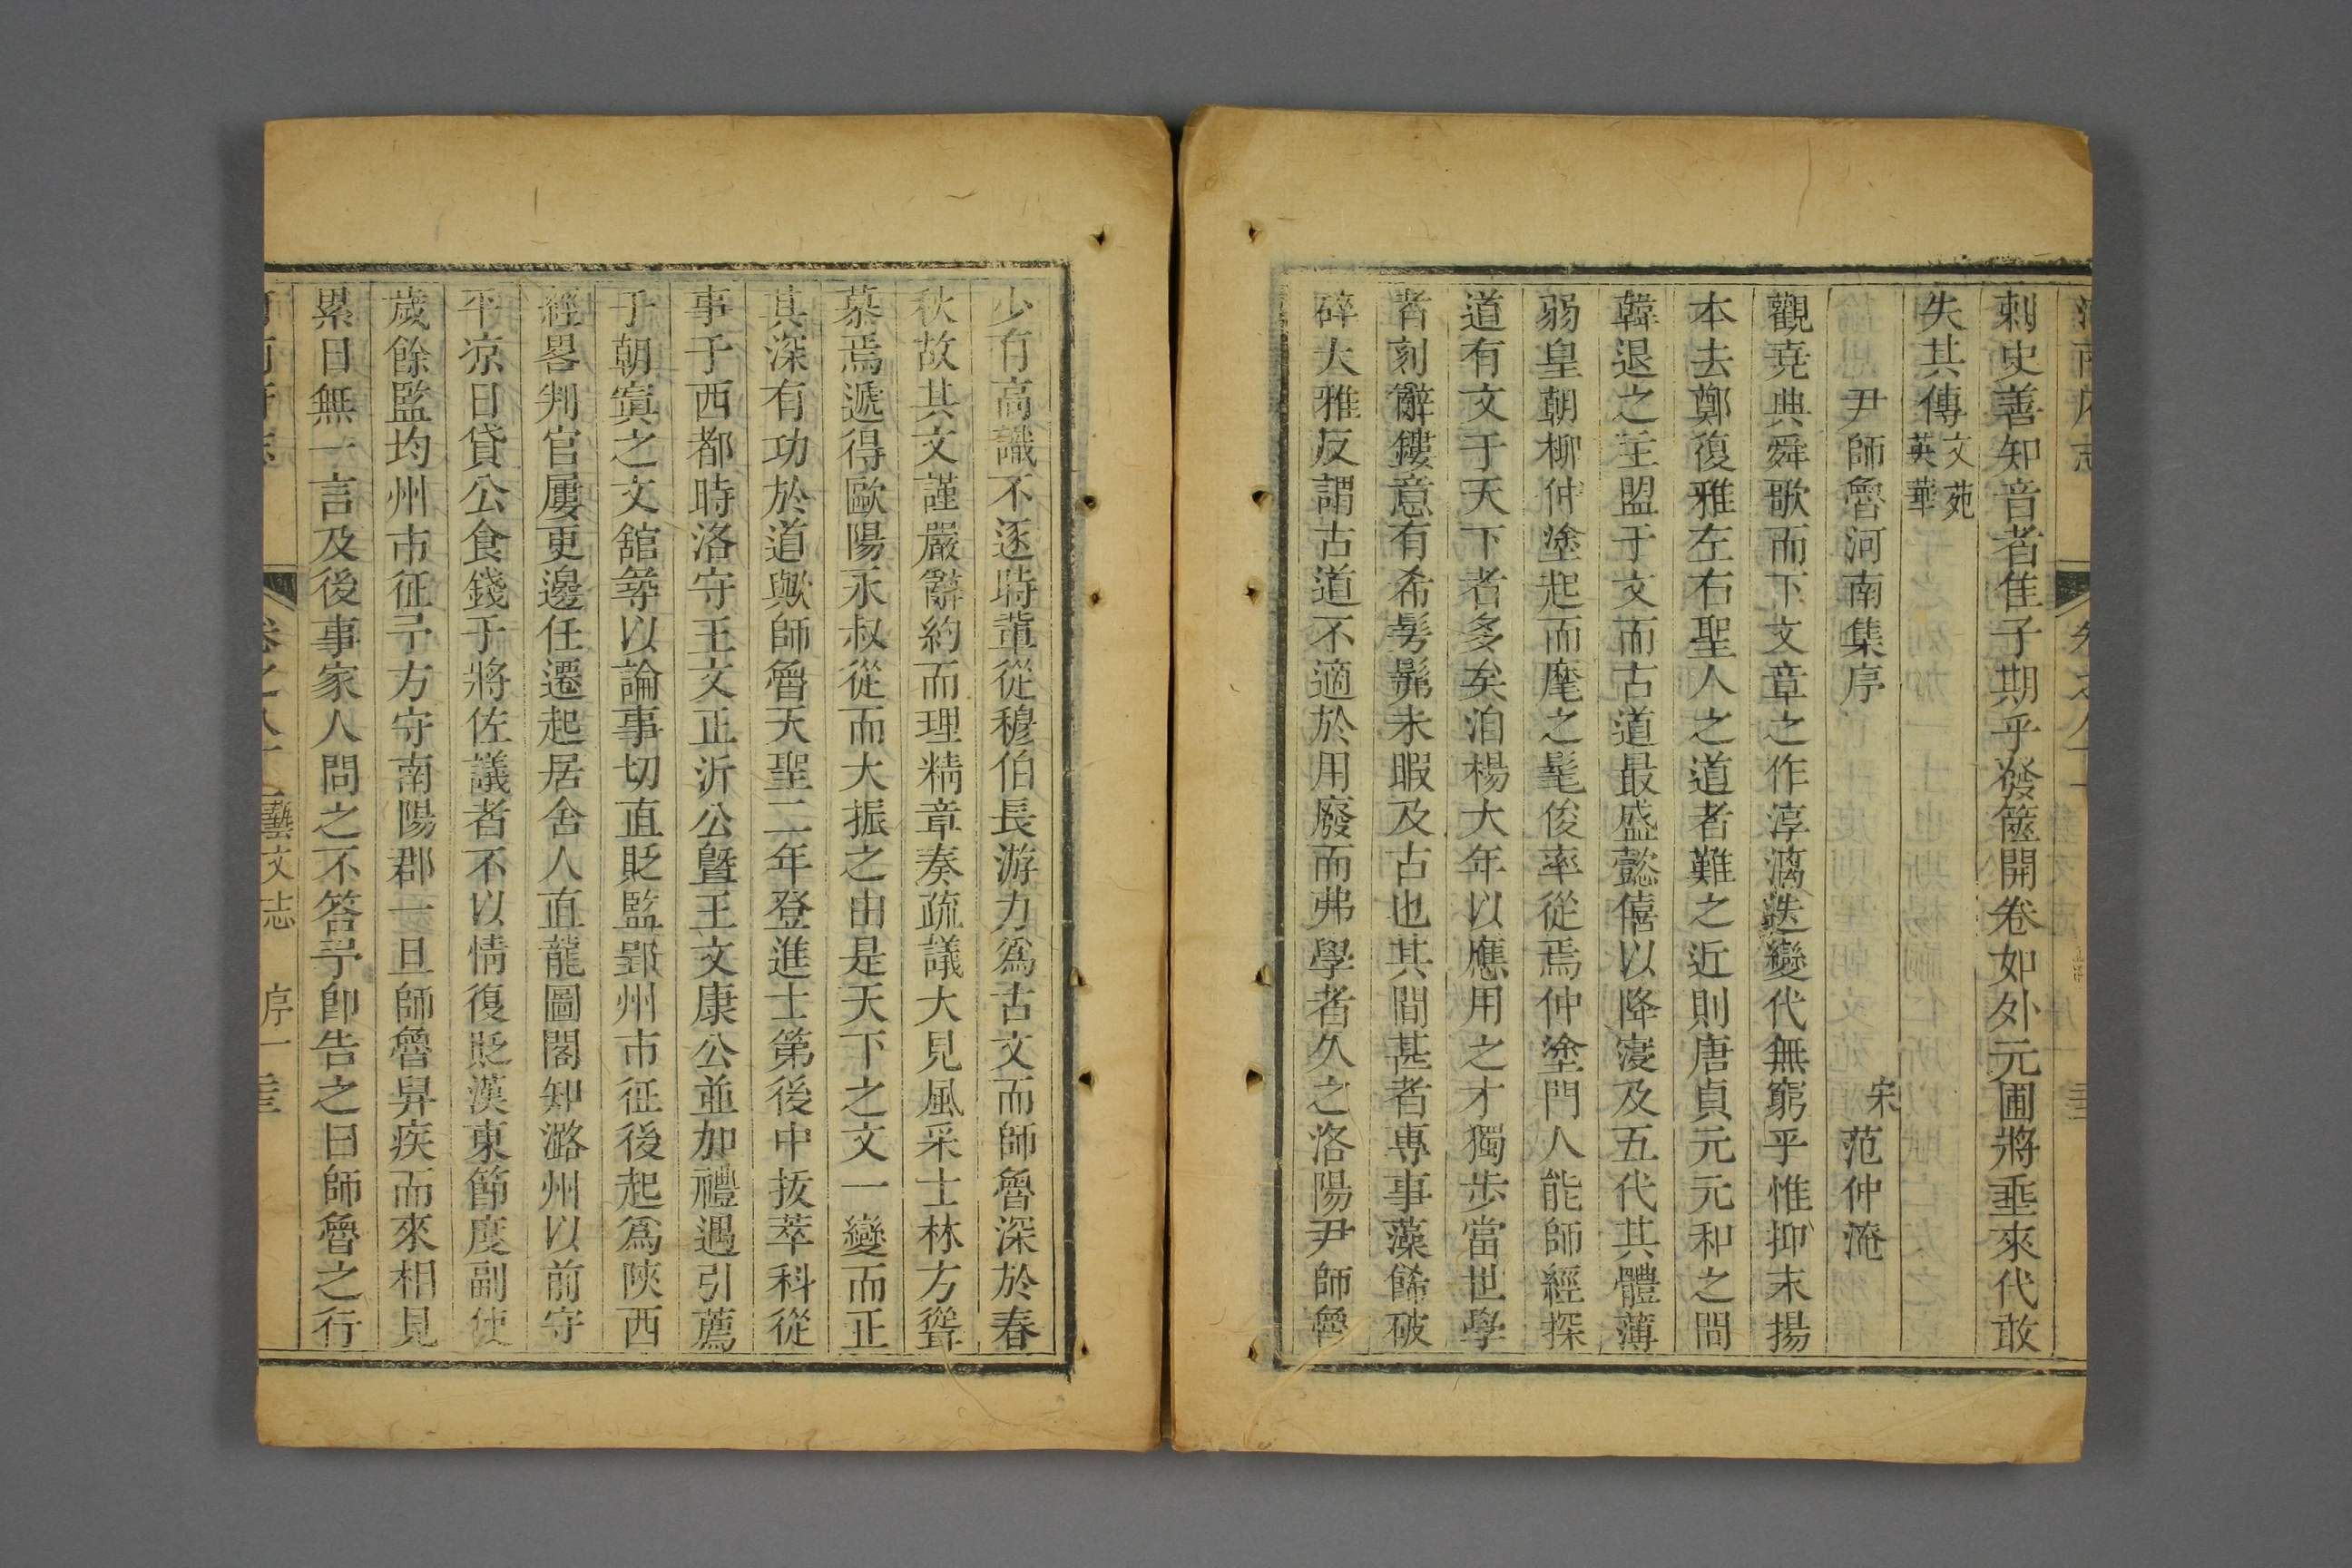 刺史善知音者隹子期乎發篋開卷如外元圃將垂來代敢
失其傳文苑英華
尹師魯河南集序
宋 范仲淹
觀堯典舜歌而下文章之作淳漓迭變代無窮乎惟抑末揚
本去鄭復雅左右聖人之道者難之近則唐貞元元和之間
韓退之主盟于文而古道最盛懿僖以降寖及五代其體薄
弱皇朝柳仲塗起而麾之髦俊率從焉仲塗門人能師經探
道有文于天下者多矣洎楊大年以應用之才獨步當世學
者刻辭鏤意有希髣髴未暇及古也其間甚者專事藻餙破
碎大雅反謂古道不適於用廢而弗學者久之洛陽尹師魯
少有高識不逐時輩從穆伯長游力爲古文而師魯深於春
秋故其文謹嚴辭約而理精章奏疏議大見風采士林方聳
慕焉遽得歐陽永叔從而大振之由是天下之文一變而正
其深有功於道歟師魯天聖二年登進士第後中拔萃科從
事于西都時洛守王文正沂公曁王文康公並加禮遇引薦
于朝寘之文舘等以論事切直貶監郢州市征後起爲陝西
經畧判官屢更邊任遷起居舍人直龍圖閣知潞州以前守
平凉日貸公食錢于將佐議者不以情復貶漢東節度副使
歲餘監均州市征予方守南陽郡一旦師魯舁疾而來相見
累日無一言及後事家人問之不答予卽告之曰師魯之行
卷之八十二藝文志 序一 圭